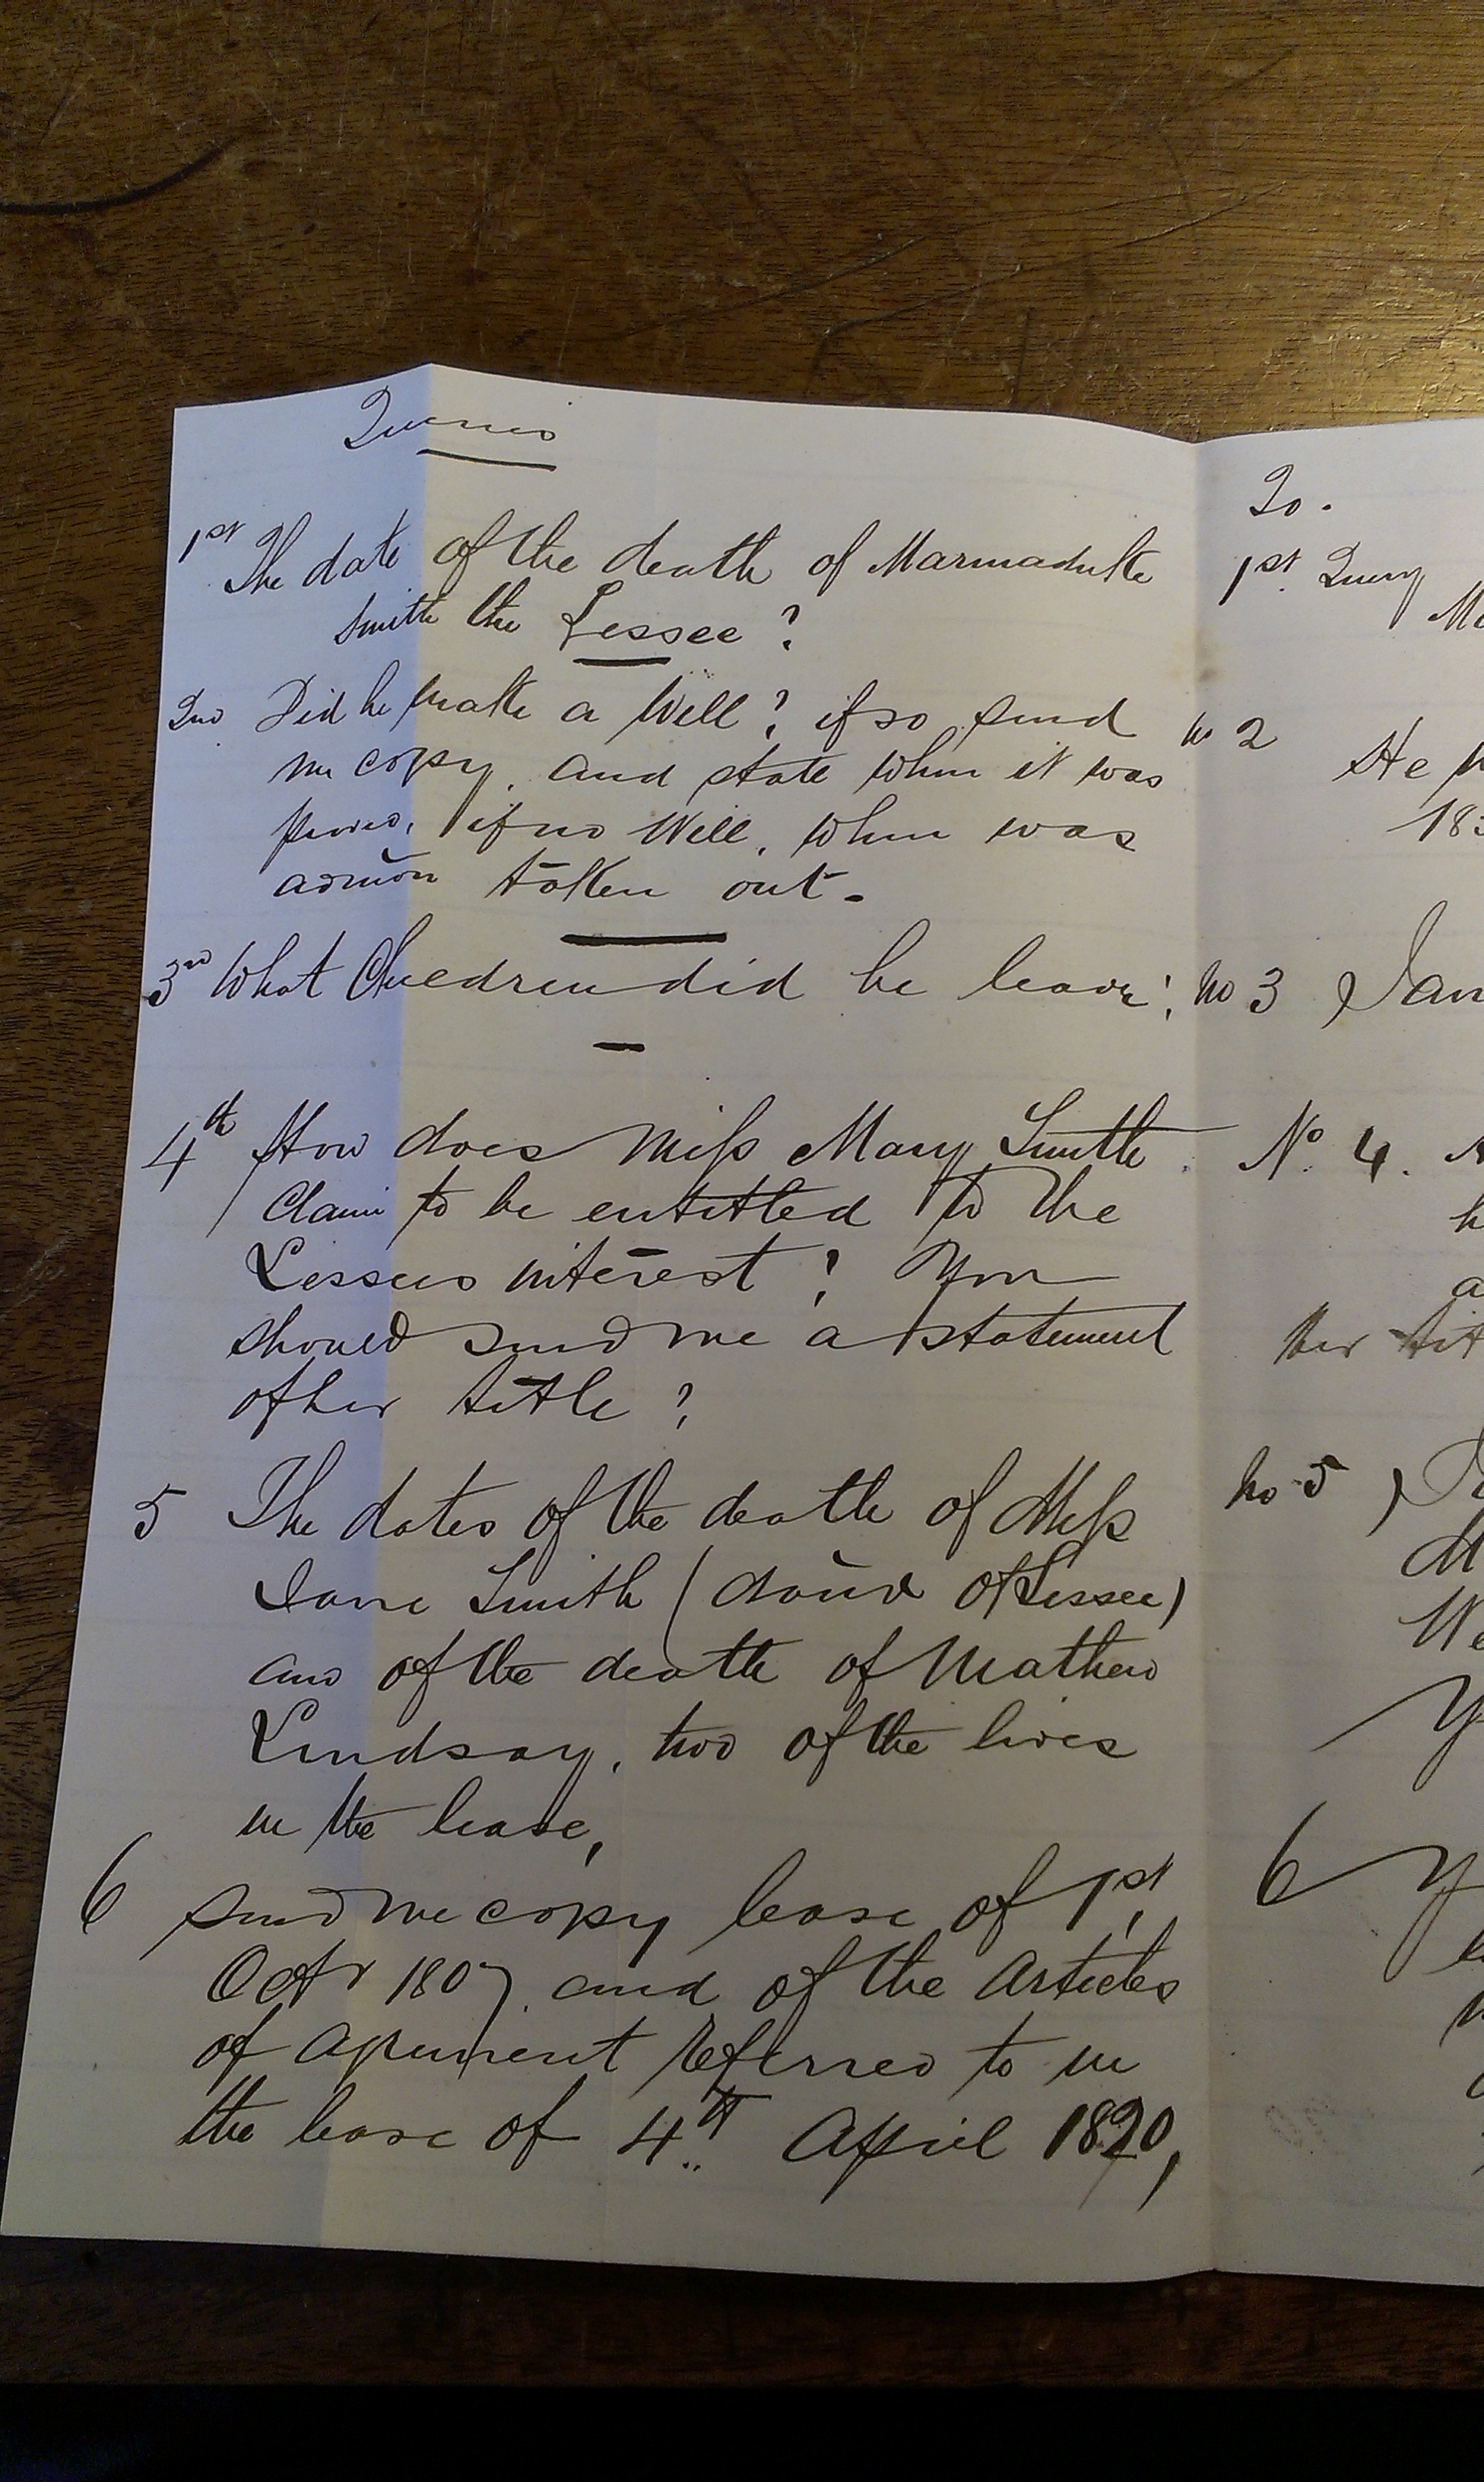 Queries
1st The date of the death of Marmaduke
Smith the Lessee?
2nd Did he make a Will? if so send
me copy, and state when it was
proved, if no Will, when was
admōn taken out.
3rd What Children did he leave?
4th How does Miss Mary Smith
Claim to be entitled to the
Lessees interest? You
should send me a statement
of her title?
5 The dates of the death of Miss
Jane Smith (daur of Lessee)
and of the death of Mathew
Lindsay, two of the lives
in the lease,
6 Send me copy lease of 1st
Octr 1807. and of the Articles
of agreement referred to in
the lease of 4th April 1820,
1st Query
No 2 He
183
No 3 Jan
No. 4.
her tit
No 5
6